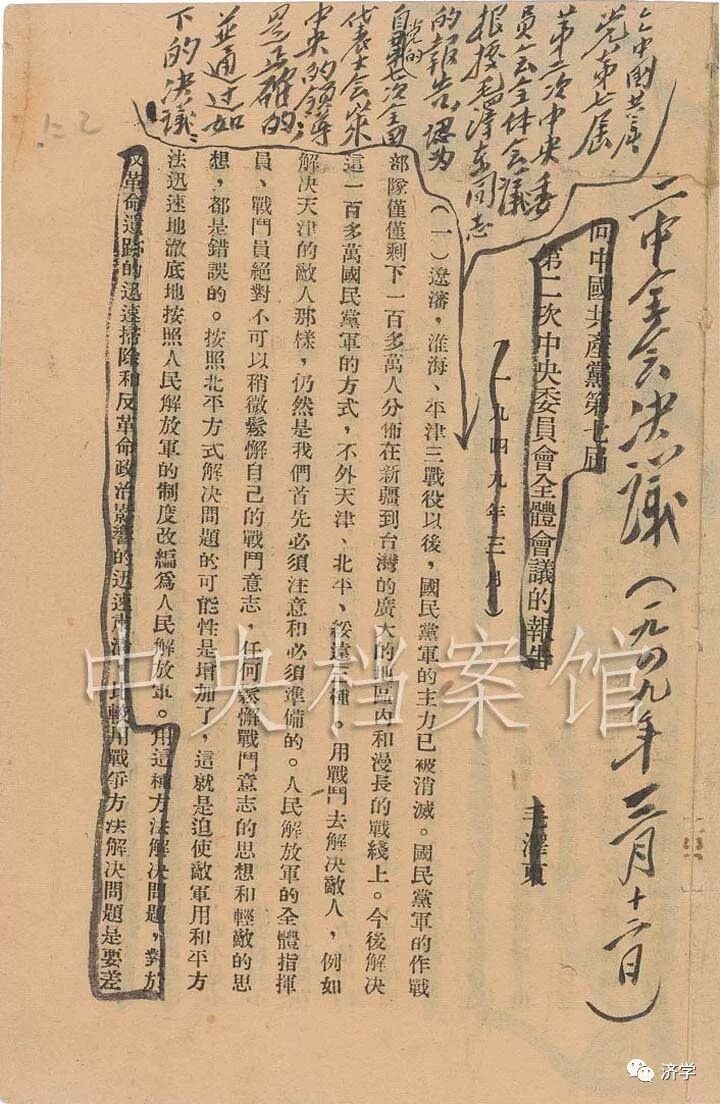 二中全会决議(一九四九年三月十三日)
中國共產
党第七届
第二次中央委
員会全体会議
根據毛澤东同志
的報告,認为
自党的第七次全国
代表大会以来
中央的領導
是正確的;
並通过如
下的决議:
向中國共產黨第七屆
第二次中央委員會全體會議的報告
(一九四九年三月)
毛澤東
(一)遼瀋,淮海、平津三戰役以後,國民黨軍的主力已被消滅。國民黨軍的作戰
部隊僅僅剩下一百多萬人分佈在新疆到台灣的廣大的地區內和漫長的戰綫上。今後解決
這一百多萬國民黨軍的方式,不外天津、北平、綏遠三種。用戰鬥去解決敵人,例如
解決天津的敵人那樣,仍然是我們首先必須注意和必須準備的。人民解放軍的全體指揮
員、戰鬥員絕對不可以稍微鬆懈自己的戰鬥意志,任何鬆懈戰鬥意志的思想和輕敵的思
想,都是錯誤的。按照北平方式解決問題的可能性是增加了,這就是迫使敵軍用和平方
法迅速地澈底地按照人民解放軍的制度改編爲人民解放軍。用這種方法解決問題,對於
反革命遺跡的迅速掃除和反革命政治影響的迅速肅清,比較用戰爭方法解決問題是要差
中央档案馆
济学